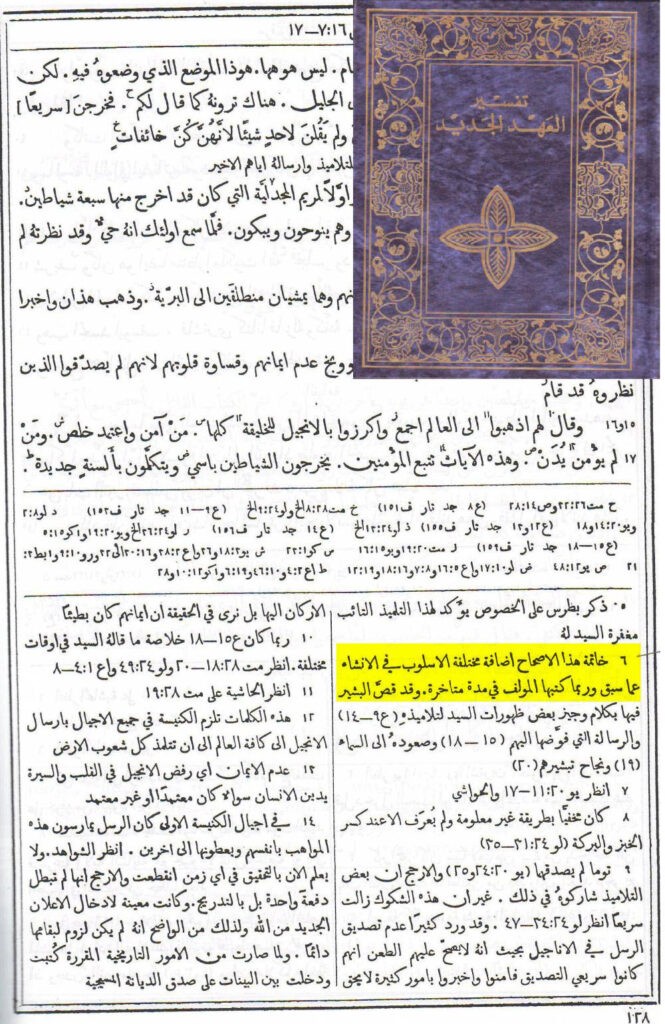 ١٦:٧-١٧
تفسير
العهد الجديد
قام . ليس هو ههنا. هوذا الموضع الذي وضعوهُ فيهِ . لكن
الجليل . هناك ترونهُ كما قال لكم . فخرجنَ [سريعًا]
ولم يقُلنَ لاحدٍ شيئًا لأَنَّهنَّ كُنَّ خائفاتٍ
للتلاميذ وارسالهُ اياهم الاخير
اوّلًا لمريم المجدلية التي كان قد اخرج منها سبعة شياطين.
وهم ينوحون ويبكون. فلمَّا سمع اولئك انهُ حيٌّ وقد نظرتهُ لم
منهم وهما يمشيان منطلقَين الى البرية . وذهب هذان واخبرا
ووبخ عدم ايمانهم وقساوة قلوبهم لانهم لم يصدّقوا الذين
نظروهُ قد قام
١٥و١٦ وقال لهم اذهبوا الى العالم اجمع واكرزوا بالانجيل للخليقة كلها . مَنْ آمن واعتمد خلص . ومَنْ
١٧ لم يؤمن يُدَن . وهذه الآيات تتبع المؤمنين. يخرجون الشياطين باسمي ويتكلَّمون بأَلسنةٍ جديدة .
ح مت ٢٢:٢٦وص١٤:٢٨ (ع٨ جد تار ف١٥١) خ مت ٨:٢٨ الخ ولو ٩:٢٤ الخ (ع٩-١١ جد تار ف١٥٢) د لو ٢:٨
ويو ١٤:٢٠و١٨ (ع١٢و١٣ جد تار ف١٥٥) ذ لو ١٣:٢٤ الخ (ع١٤ جد تار ف١٥٦) ر لو ٣٦:٢٤ الخ ويو ١٩:٢٠ واكو ٥:١٥
(ع١٥-١٨ جد تار ف١٥٩) ز مت ١٩:٢٨ ويو ١٦:١٥ س كو ٢٣:١ ش يو ١٨:٣و٣٦ واع ٣٨:٢و٣٠:١٦ الى ٣٢ ورو ٩:١٠ وابط ٣:
٢١ ص يو ٤٨:١٢ ض لو ١٧:١٠ واع ١٦:٥و٧:٨و١٨:١٦و١٢:١٩ ط اع ٤:٢و٤٦:١٠و٦:١٩ واكو ١٠:١٢و٢٨
٥ ذكر بطرس على الخصوص يؤكد لهذا التلميذ التائب
مغفرة السيد لهُ
٦ خاتمة هذا الاصحاح اضافة مختلفة الاسلوب في الانشاء
عما سبق وربما كتبها المولف في مدة متاخرة. وقد قصَّ البشير
فيها بكلام وجيز بعض ظهورات السيد لتلاميذهِ (ع٩-١٤)
والرسالة التي فوَّضها اليهم (١٥-١٨) وصعودهُ الى السماء
(١٩) ونجاح تبشيرهم (٢٠)
٧ انظر يو ١١:٢٠-١٧ والحواشي
٨ كان مخفيًّا بطريقة غير معلومة ولم يعرف الا عند كسر
الخبز والبركة (لو ٣١:٢٤-٣٥)
٩ توما لم يصدقها (يو ٢٤:٢٠و٢٥) والارجح ان بعض
التلاميذ شاركوهُ في ذلك . غير ان هذه الشكوك زالت
سريعًا انظر لو ٣٤:٢٤-٤٧ . وقد ورد كثيرًا عدم تصديق
الرسل في الاناجيل بحيث انهُ لا يصحُّ عليهم الطعن انهم
كانوا سريعي التصديق فامنوا واخبروا بامور كثيرة لا يحق
الاركان اليها بل نرى في الحقيقة ان ايمانهم كان بطيئًا
١٠ ربما كان ع١٥-١٨ خلاصة ما قالهُ السيد في اوقات
مختلفة. انظر مت ١٨:٢٨-٢٠ ولو ٤٩:٢٤ واع ٤:١-٨
١١ انظر الحاشية على مت ١٩:٢٨
١٢ هذه الكلمات تلزم الكنيسة في جميع الاجيال بارسال
الانجيل الى كافة العالم الى ان تتلمذ كل شعوب الارض
١٣ عدم الايمان اي رفض الانجيل في القلب والسيرة
يدين الانسان سواء كان معتمدًا او غير معتمد
١٤ في اجيال الكنيسة الاولى كان الرسل يمارسون هذه
المواهب بانفسهم ويعطونها الى اخرين . انظر الشواهد. ولا
يعلم الان بالتحقيق في اي زمن انقطعت والارجح انها لم تبطل
دفعةً واحدة بل بالتدريج. وكانت معينة لادخال الاعلان
الجديد من الله ولذلك من الواضح انهُ لم يكن لزوم لبقاءها
دائمًا . ولما صارت من الامور التاريخية المقررة كُتبت
ودخلت بين البينات على صدق الديانة المسيحية
١٢٨